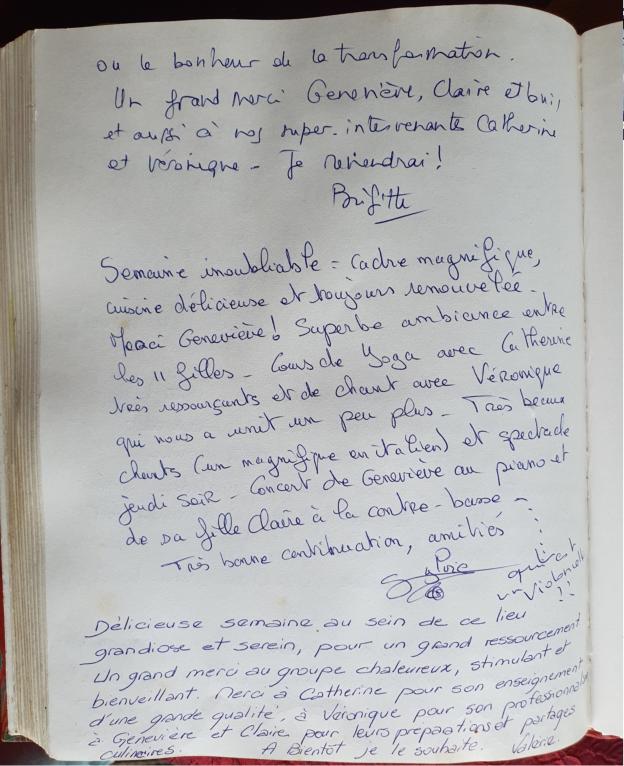 ou le bonheur de la transformation.
Un grand merci Geneviève, Claire et
et aussi à nos super-intervenantes Catherine
et Véronique - Je reviendrai !
Brigitte
Semaine inoubliable = cadre magnifique,
cuisine délicieuse et toujours renouvelée -
Merci Geneviève ! Superbe ambiance entre
les 11 filles - Cours de Yoga avec Catherine
très ressourçants et de chant avec Véronique
qui nous a unit un peu plus - Très beaux
chants (un magnifique en italien) et spectacle
jeudi soir - Concert de Geneviève au piano et
de sa fille Claire à la contre-basse -
Très bonne continuation, amitiés
Sylvie
qui est
un violoncelle
!!
Délicieuse semaine au sein de ce lieu
grandiose et serein, pour un grand ressourcement
Un grand merci au groupe chaleureux, stimulant et
bienveillant. Merci à Catherine pour son enseignement
d'une grande qualité, à Véronique pour son
à Geneviève et Claire pour leurs préparations et partages
culinaires. A Bientôt je le souhaite. Valérie.